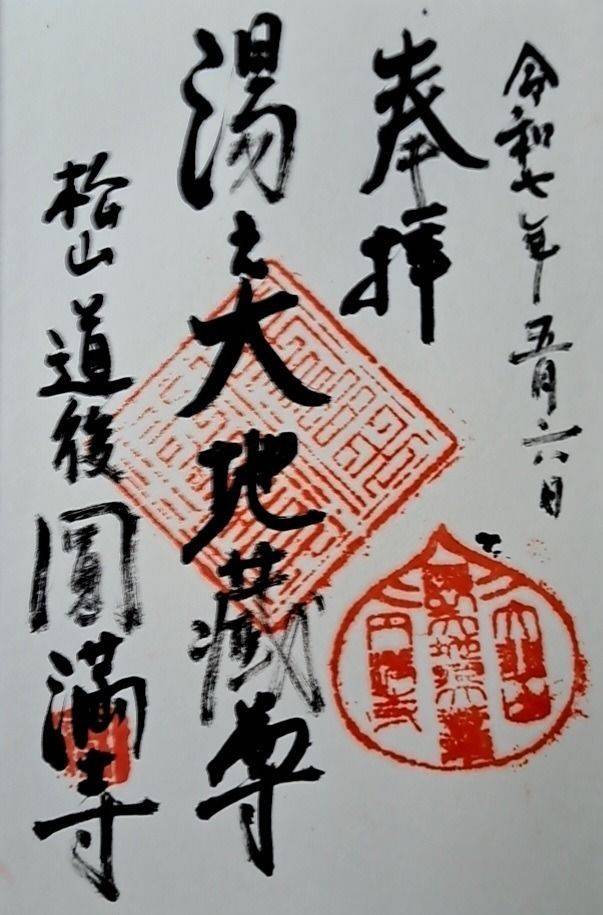 令和七年五月六日
奉拝
湯之大地蔵尊
松山道後圓満寺